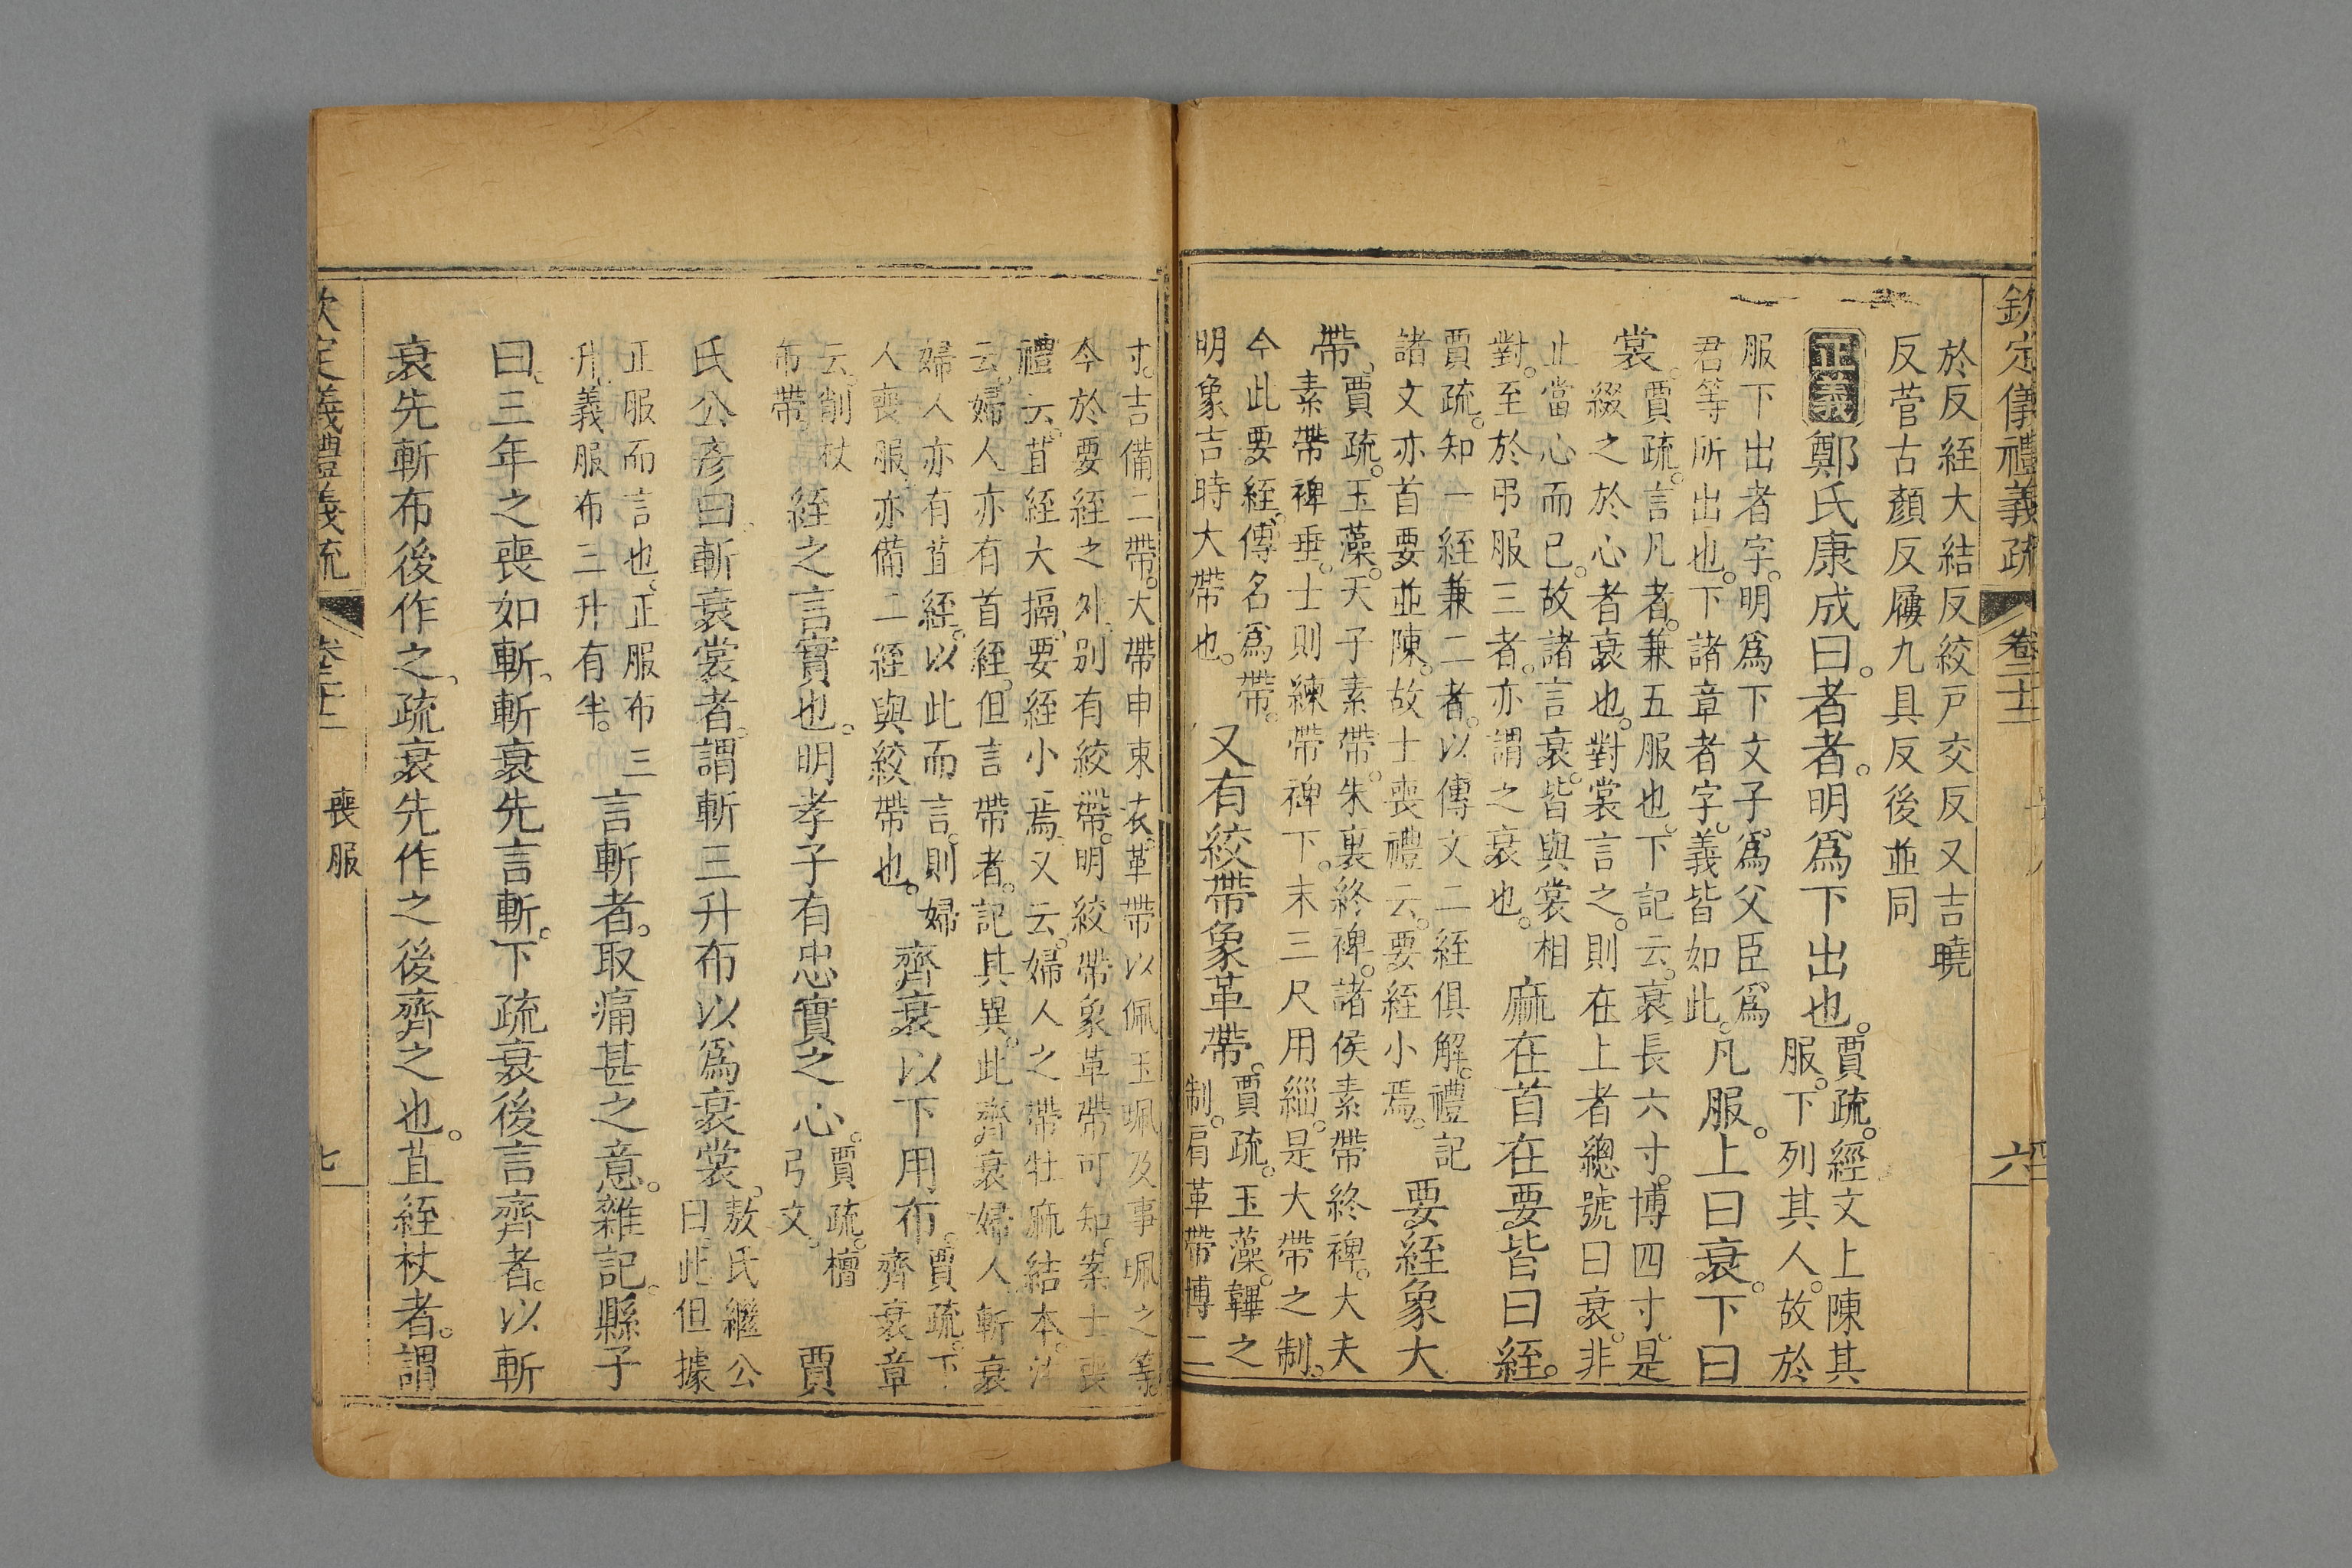 欽定儀禮義疏 卷二十二 六
於反絰大結反絞戸交反又吉曉
反菅古顏反屨九具反後並同
正義鄭氏康成曰。者者。明爲下出也。
賈疏。經文上陳其
服。下列其人。故於
服下出者字。明爲下文子爲父臣爲
君等所出也。下諸章者字。義皆如此。
凡服。上曰衰。下曰
裳。
賈疏。言凡者。兼五服也。下記云。衰長六寸。博四寸。是
綴之於心者衰也。對裳言之。則在上者總號曰衰。非
止當心而已。故諸言衰。皆與裳相
對。至於弔服三者。亦謂之衰也。
麻在首在要皆曰絰。
賈疏。知一絰兼二者。以傳文二絰俱解。禮記
諸文亦首要並陳。故士喪禮云。要絰小焉。
要絰象大
帶。
賈疏。玉藻。天子素帶。朱裏終裨。諸侯素帶終裨。大夫
素帶裨垂。士則練帶裨下。末三尺用緇。是大帶之制。
今此要絰。傳名爲帶。
明象吉時大帶也。
又有絞帶象革帶。
賈疏。玉藻。韠之
制。肩革帶博二
寸。吉備二帶。大帶申束衣。革帶以佩玉珮及事珮之等。
今於要絰之外。別有絞帶。明絞帶象革帶可知。案士喪
禮云。苴絰大搹。要絰小焉。又云。婦人之帶牡麻結本。注
云。婦人亦有首絰。但言帶者。記其異。此齊衰婦人斬衰
婦人亦有苴絰。以此而言。則婦
人喪服。亦備二絰與絞帶也。
齊衰以下用布。
賈疏。下
齊衰章
云。削杖
布帶。
絰之言實也。明孝子有忠實之心。
賈疏。檀
弓文。
賈
氏公彥曰。斬衰裳者。謂斬三升布以爲衰裳。
敖氏繼公
曰。此但據
正服而言也。正服布三
升。義服布三升有半。
言斬者。取痛甚之意。雜記。縣子
曰。三年之喪如斬。斬衰先言斬。下疏衰後言齊者。以斬
衰先斬布後作之。疏衰先作之後齊之也。苴絰杖者。謂
欽定義禮義疏 卷二十二 喪服 七